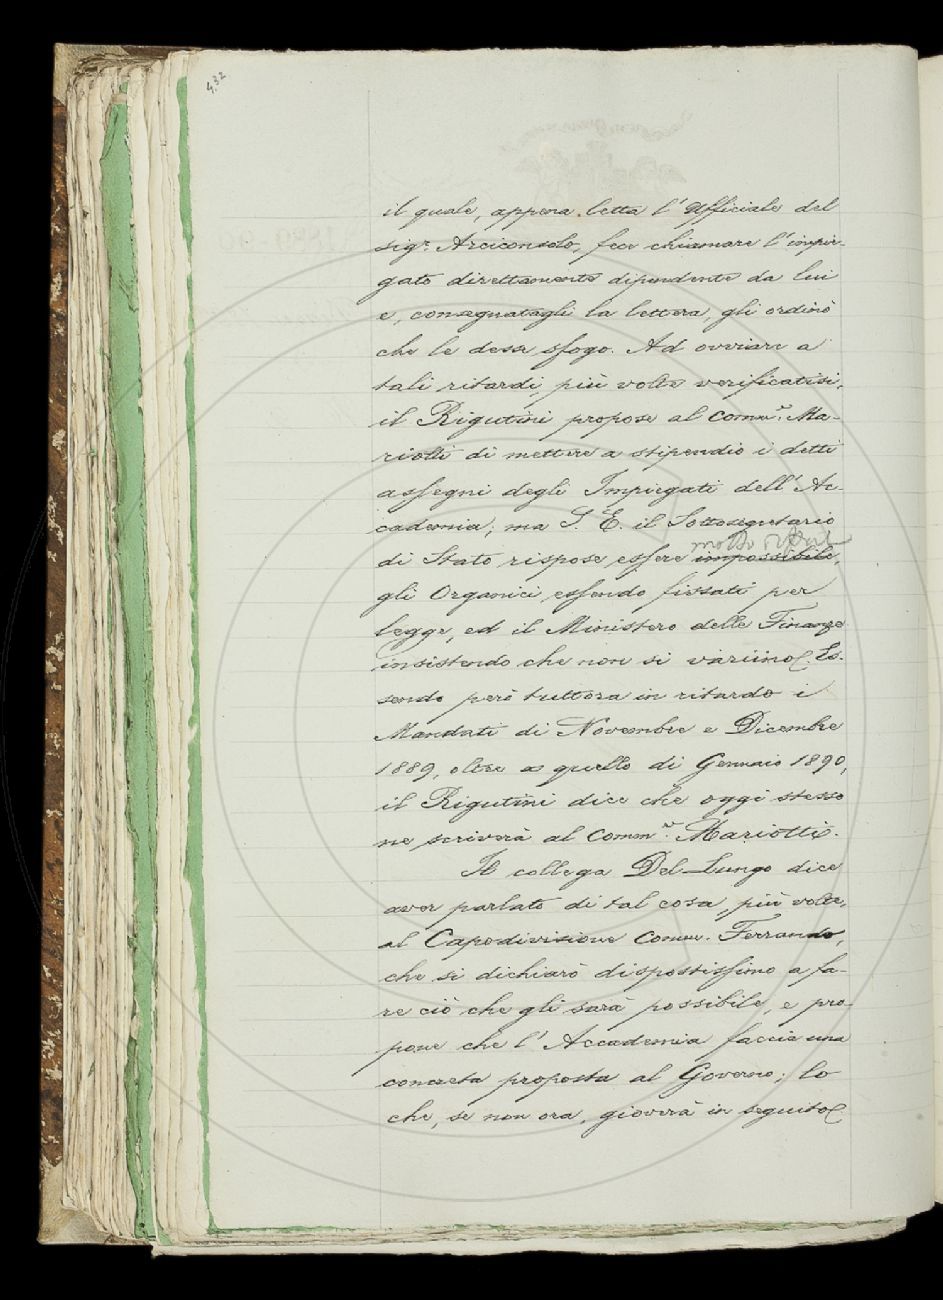 432
il quale, appena letta l'Ufficiale del
sigr. Arciconsolo, fece chiamare l'impie-
gato direttamente dipendente da lui
e, consegnatagli la lettera, gli ordinò
che le desse sfogo. Ad ovviare a
tali ritardi, più volte verificatisi,
il Rigutini propose al Comm.r Ma-
riotti di mettere a stipendio i detti
assegni degli Impiegati dell'Ac-
cademia; ma S. E. il Sottosegretario
molto diffici
di Stato rispose essere impossibile,
gli Organici essendo fissati per
legge, ed il Ministero delle Finanze
insistendo che non si variino. Es-
sendo però tuttora in ritardo i
Mandati di Novembre e Dicembre
1889, oltre a quello di Gennaio 1890,
il Rigutini dice che oggi stesso
ne scriverà al Comm.r Mariotti.
Il collega Del-Lungo dice
aver parlato di tal cosa, più volte,
al Capodivisione Comm. Ferrando,
che si dichiarò dispostissimo a fa-
re ciò che gli sarà possibile, e pro-
pone che l'Accademia faccia una
concreta proposta al Governo; lo
che, se non ora, gioverà in seguito